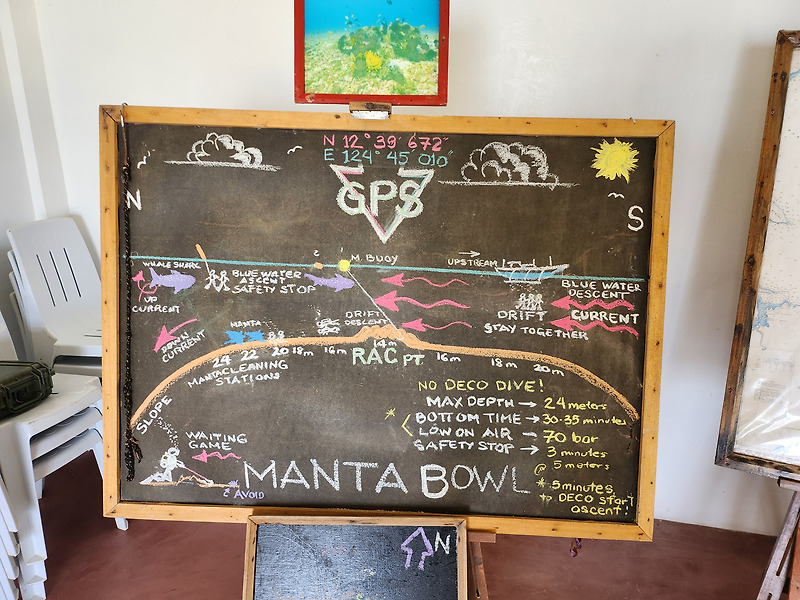 N 12° 39' 672"
E 124° 45' 010"
GPS
N
S
WHALE SHARK
UP
CURRENT
BLUE WATER
ASCENT
SAFETY STOP
M. BUOY
UPSTREAM
BLUE WATER
DESCENT
CURRENT
DRIFT
STAY TOGETHER
DOWN
CURRENT
MANTA
DRIFT
DESCENT
24 22 20 18m 16m 14m 16m 18m 20m
RAC PT
MANTA CLEANING
STATIONS
SLOPE
WAITING
GAME
AVOID
NO DECO DIVE!
MAX DEPTH → 24 meters
* BOTTOM TIME → 30-35 minutes
LOW ON AIR → 70 bar
SAFETY STOP → 3 minutes
@ 5 meters
* 5 minutes
to DECO start
ascent!
MANTA BOWL
N